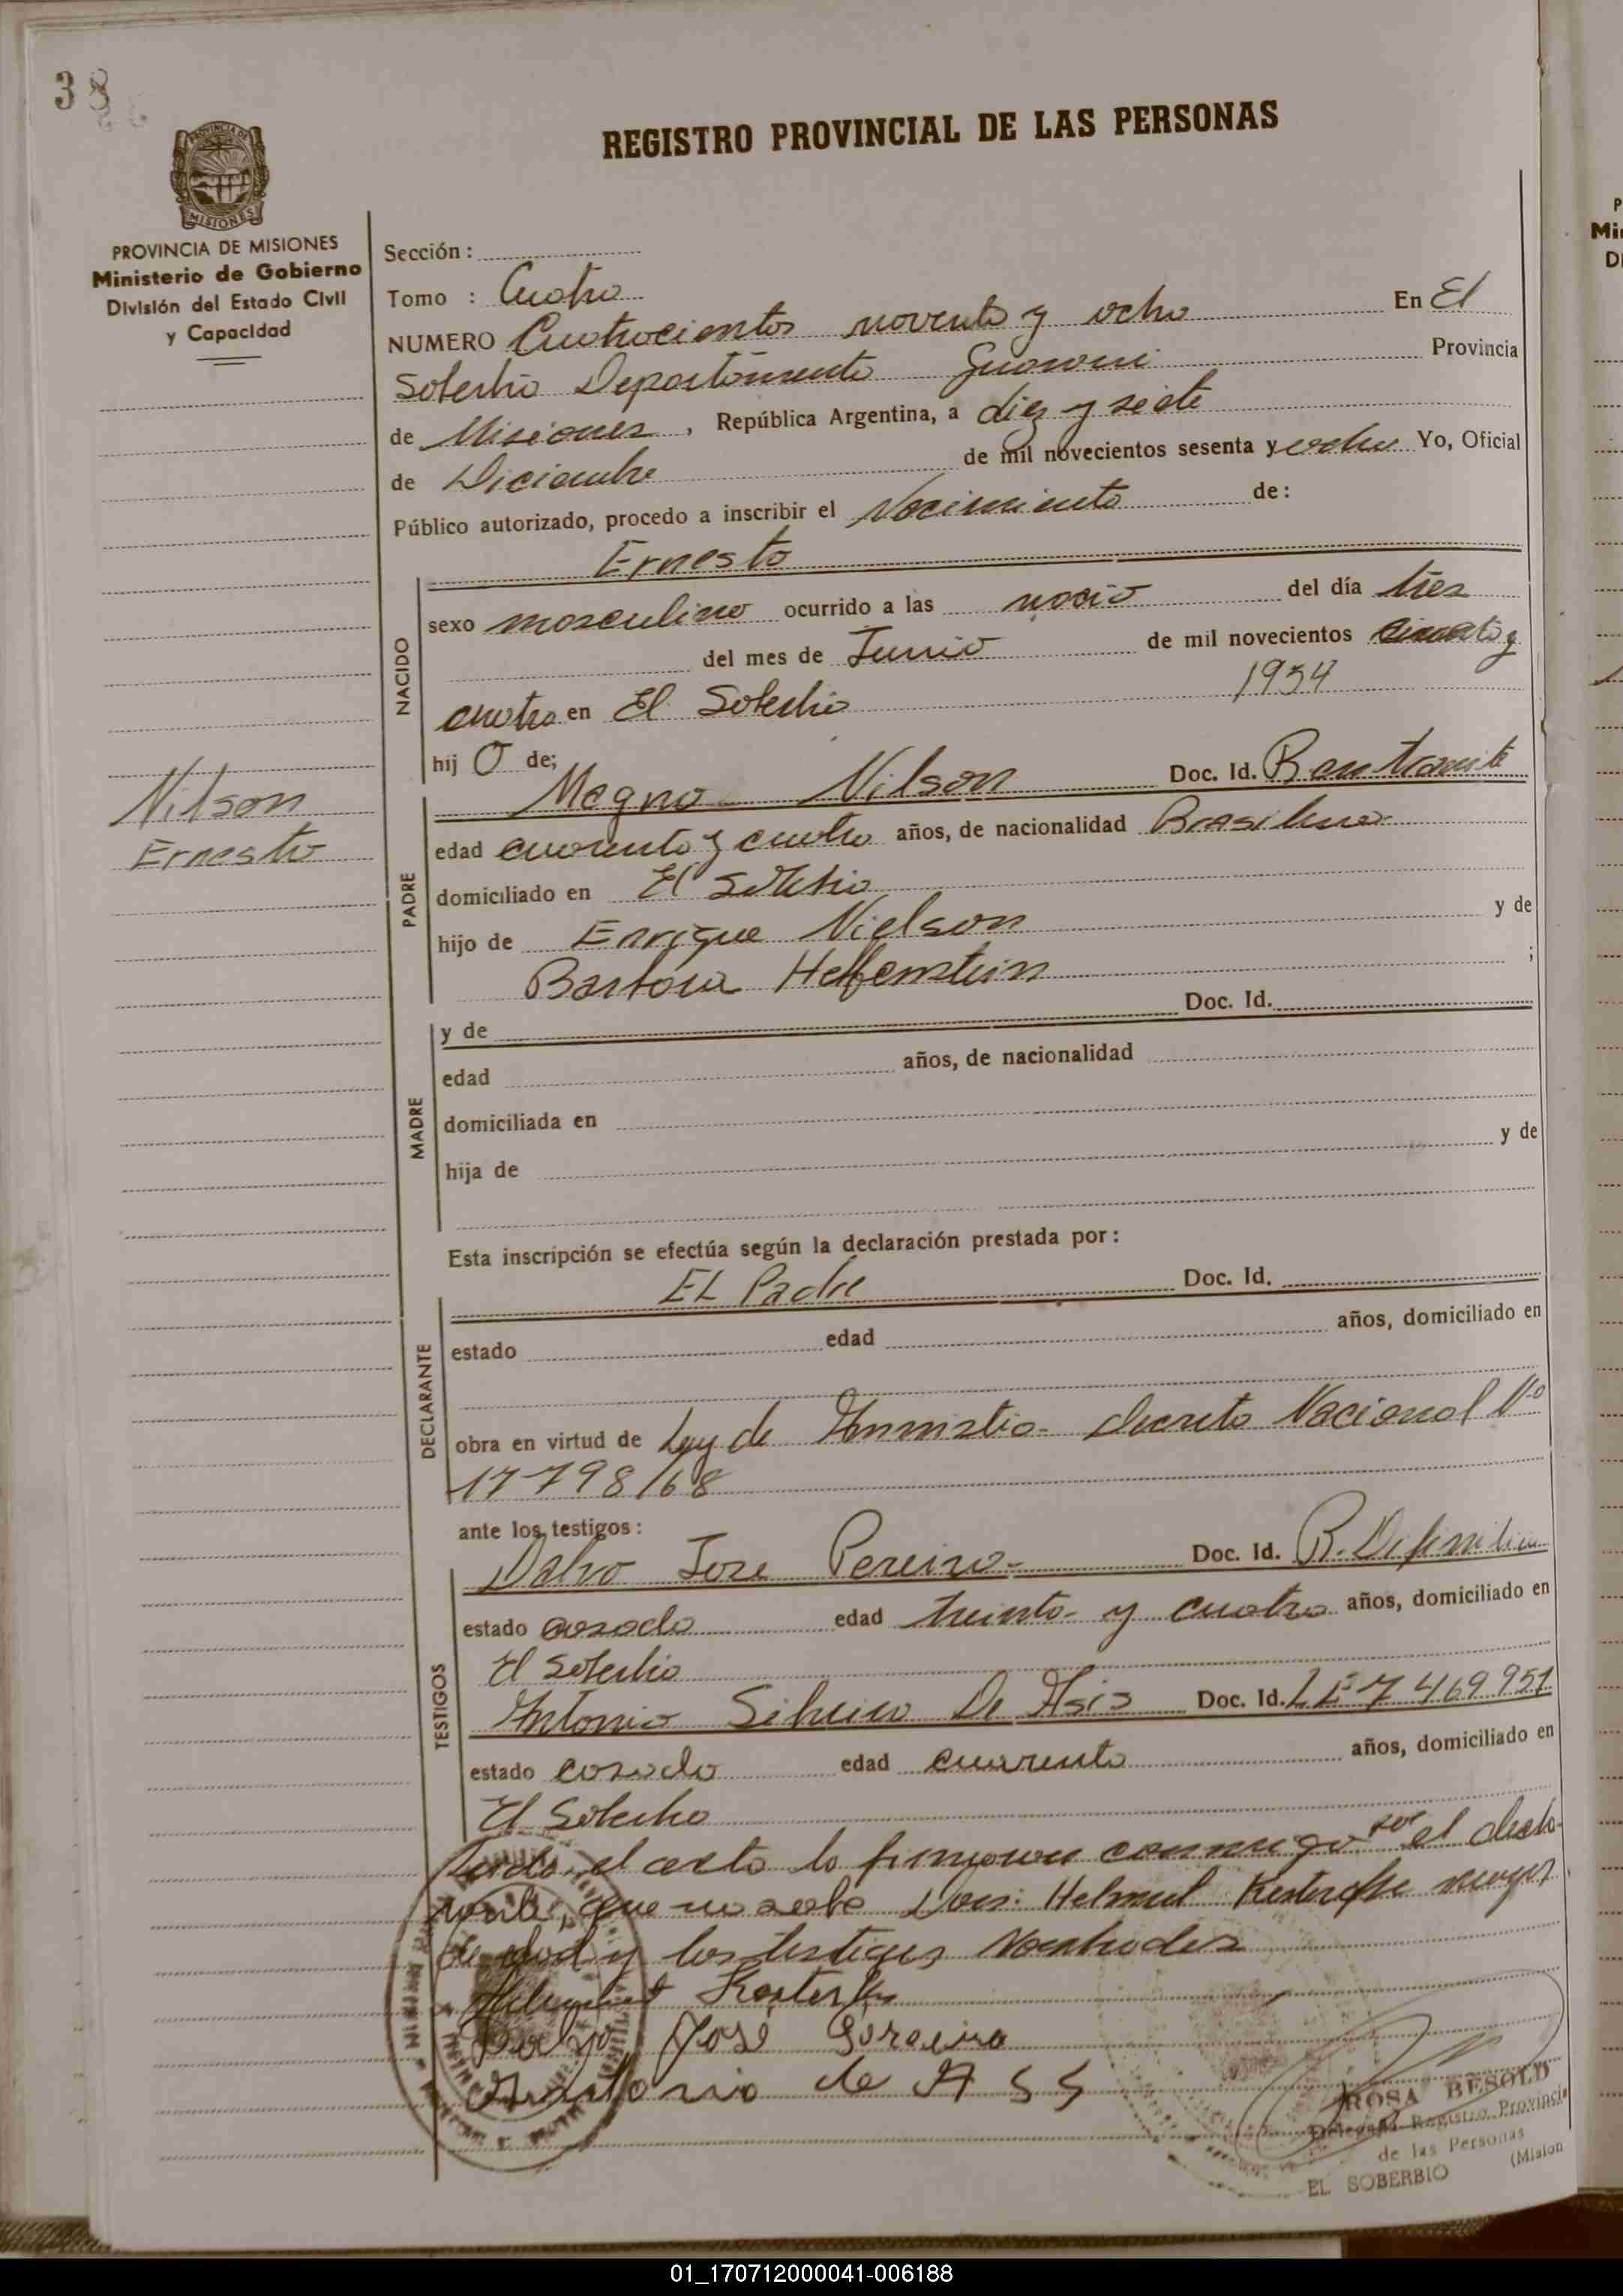 38
REGISTRO PROVINCIAL DE LAS PERSONAS
PROVINCIA DE
MISIONES
PROVINCIA DE MISIONES
Ministerio de Gobierno
División del Estado Civil
y Capacidad
Sección :
Tomo : Cuatro
NUMERO Cuatrocientos noventa y ocho En El
Soberbio Departamento Guarani Provincia
de Misiones , República Argentina, a diez y siete
de Diciembre de mil novecientos sesenta y ocho Yo, Oficial
Público autorizado, procedo a inscribir el Nacimiento de:
Ernesto
NACIDO
sexo masculino ocurrido a las nacio del día tres
del mes de Junio de mil novecientos y
cuatro en El Soberbio 1954
hij o de;
Nilson
Ernesto
PADRE
Magno Nilson Doc. Id.
edad cuarenta y cuatro años, de nacionalidad Brasilera
domiciliado en El Soberbio
hijo de Enrique Nielson y de
Barbara Helfenstein ;
MADRE
y de Doc. Id.
edad años, de nacionalidad
domiciliada en
hija de y de
Esta inscripción se efectúa según la declaración prestada por :
DECLARANTE
EL Padre Doc. Id.
estado edad años, domiciliado en
obra en virtud de Ley de Amnistia - decreto Nacional Nº
17798/68
ante los testigos :
TESTIGOS
Dalvo Jose Pereira - Doc. Id. R. Definitiva
estado casado edad treinta y cuatro años, domiciliado en
El Soberbio
Antonio Silveira De Asis Doc. Id. LE 7469951
estado casado edad cuarenta años, domiciliado en
El Soberbio
Leida el acta la firmaron conmigo por el decla-
rante, que no sabe Don: Helmut mayor
de edad y los testigos Nombrados
José Pereira
Antonio de A S S
ROSA BESOLD
Delegada Registro Provincial
de las Personas
EL SOBERBIO (Mision
P
Mi
D
01_170712000041-006188